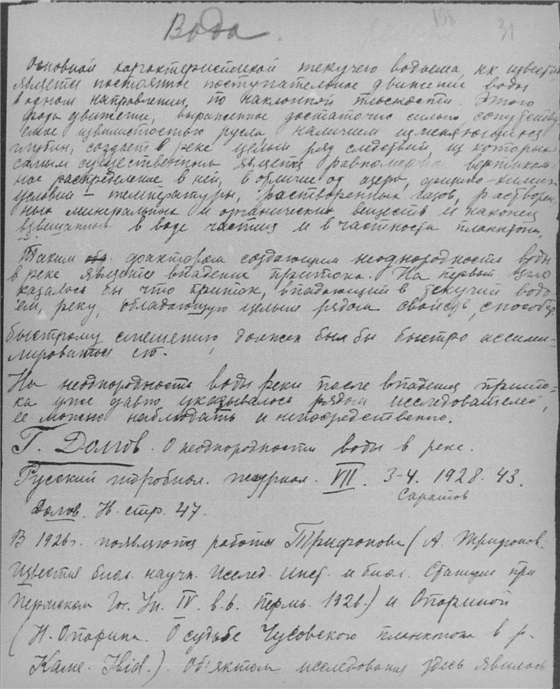 Вода
31
Основной характеристикой текучего водоема, как известно
является постоянное поступательное движение воды
в одном направлении, по наклонной плоскости. Этого
рода движение, выраженное достаточно сильно, сопутству
емое извилистостью русла наличием изменяющихся
глубин, создает в реке целый ряд следствий, из которых
самым существенным является равномерное вертикаль
ное распределение в ней, в отличие от озера, физико-химич.
условий – температуры, растворенных газов, растворен
ных минеральных и органических веществ и наконец
взвешенных в воде частиц и в частности планктона.
Таким фактором создающим неоднородность воды
в реке является впадение притока. На первый взгляд
казалось бы что приток, впадающий в текучий водо
ем, реку, обладающую целым рядом свойств, способств.
быстрому смешению, должен был бы быстро ассими-
лироваться ею.
На неоднородность воды реки после впадения прито-
ка уже давно указывалось рядом исследователей,
ее можно наблюдать и непосредственно.
Г. Долгов. О неоднородности воды в реке.
Русский гидробиол. журнал. VII. 3-4. 1928. 43.
Саратов
Долгов. Н. стр. 47.
В 1926г. появляются работы Трифонова (А. Трифонов.
Известия биол. научн. Исслед. Инст. и биол. Станции при
Пермском Гос. Ун. IV. в.6. Пермь. 1926.) и Опариной
(Н. Опарина. О судьбе Чусовского планктона в р.
Каме. Ibid.). Объектом исследования здесь явилась